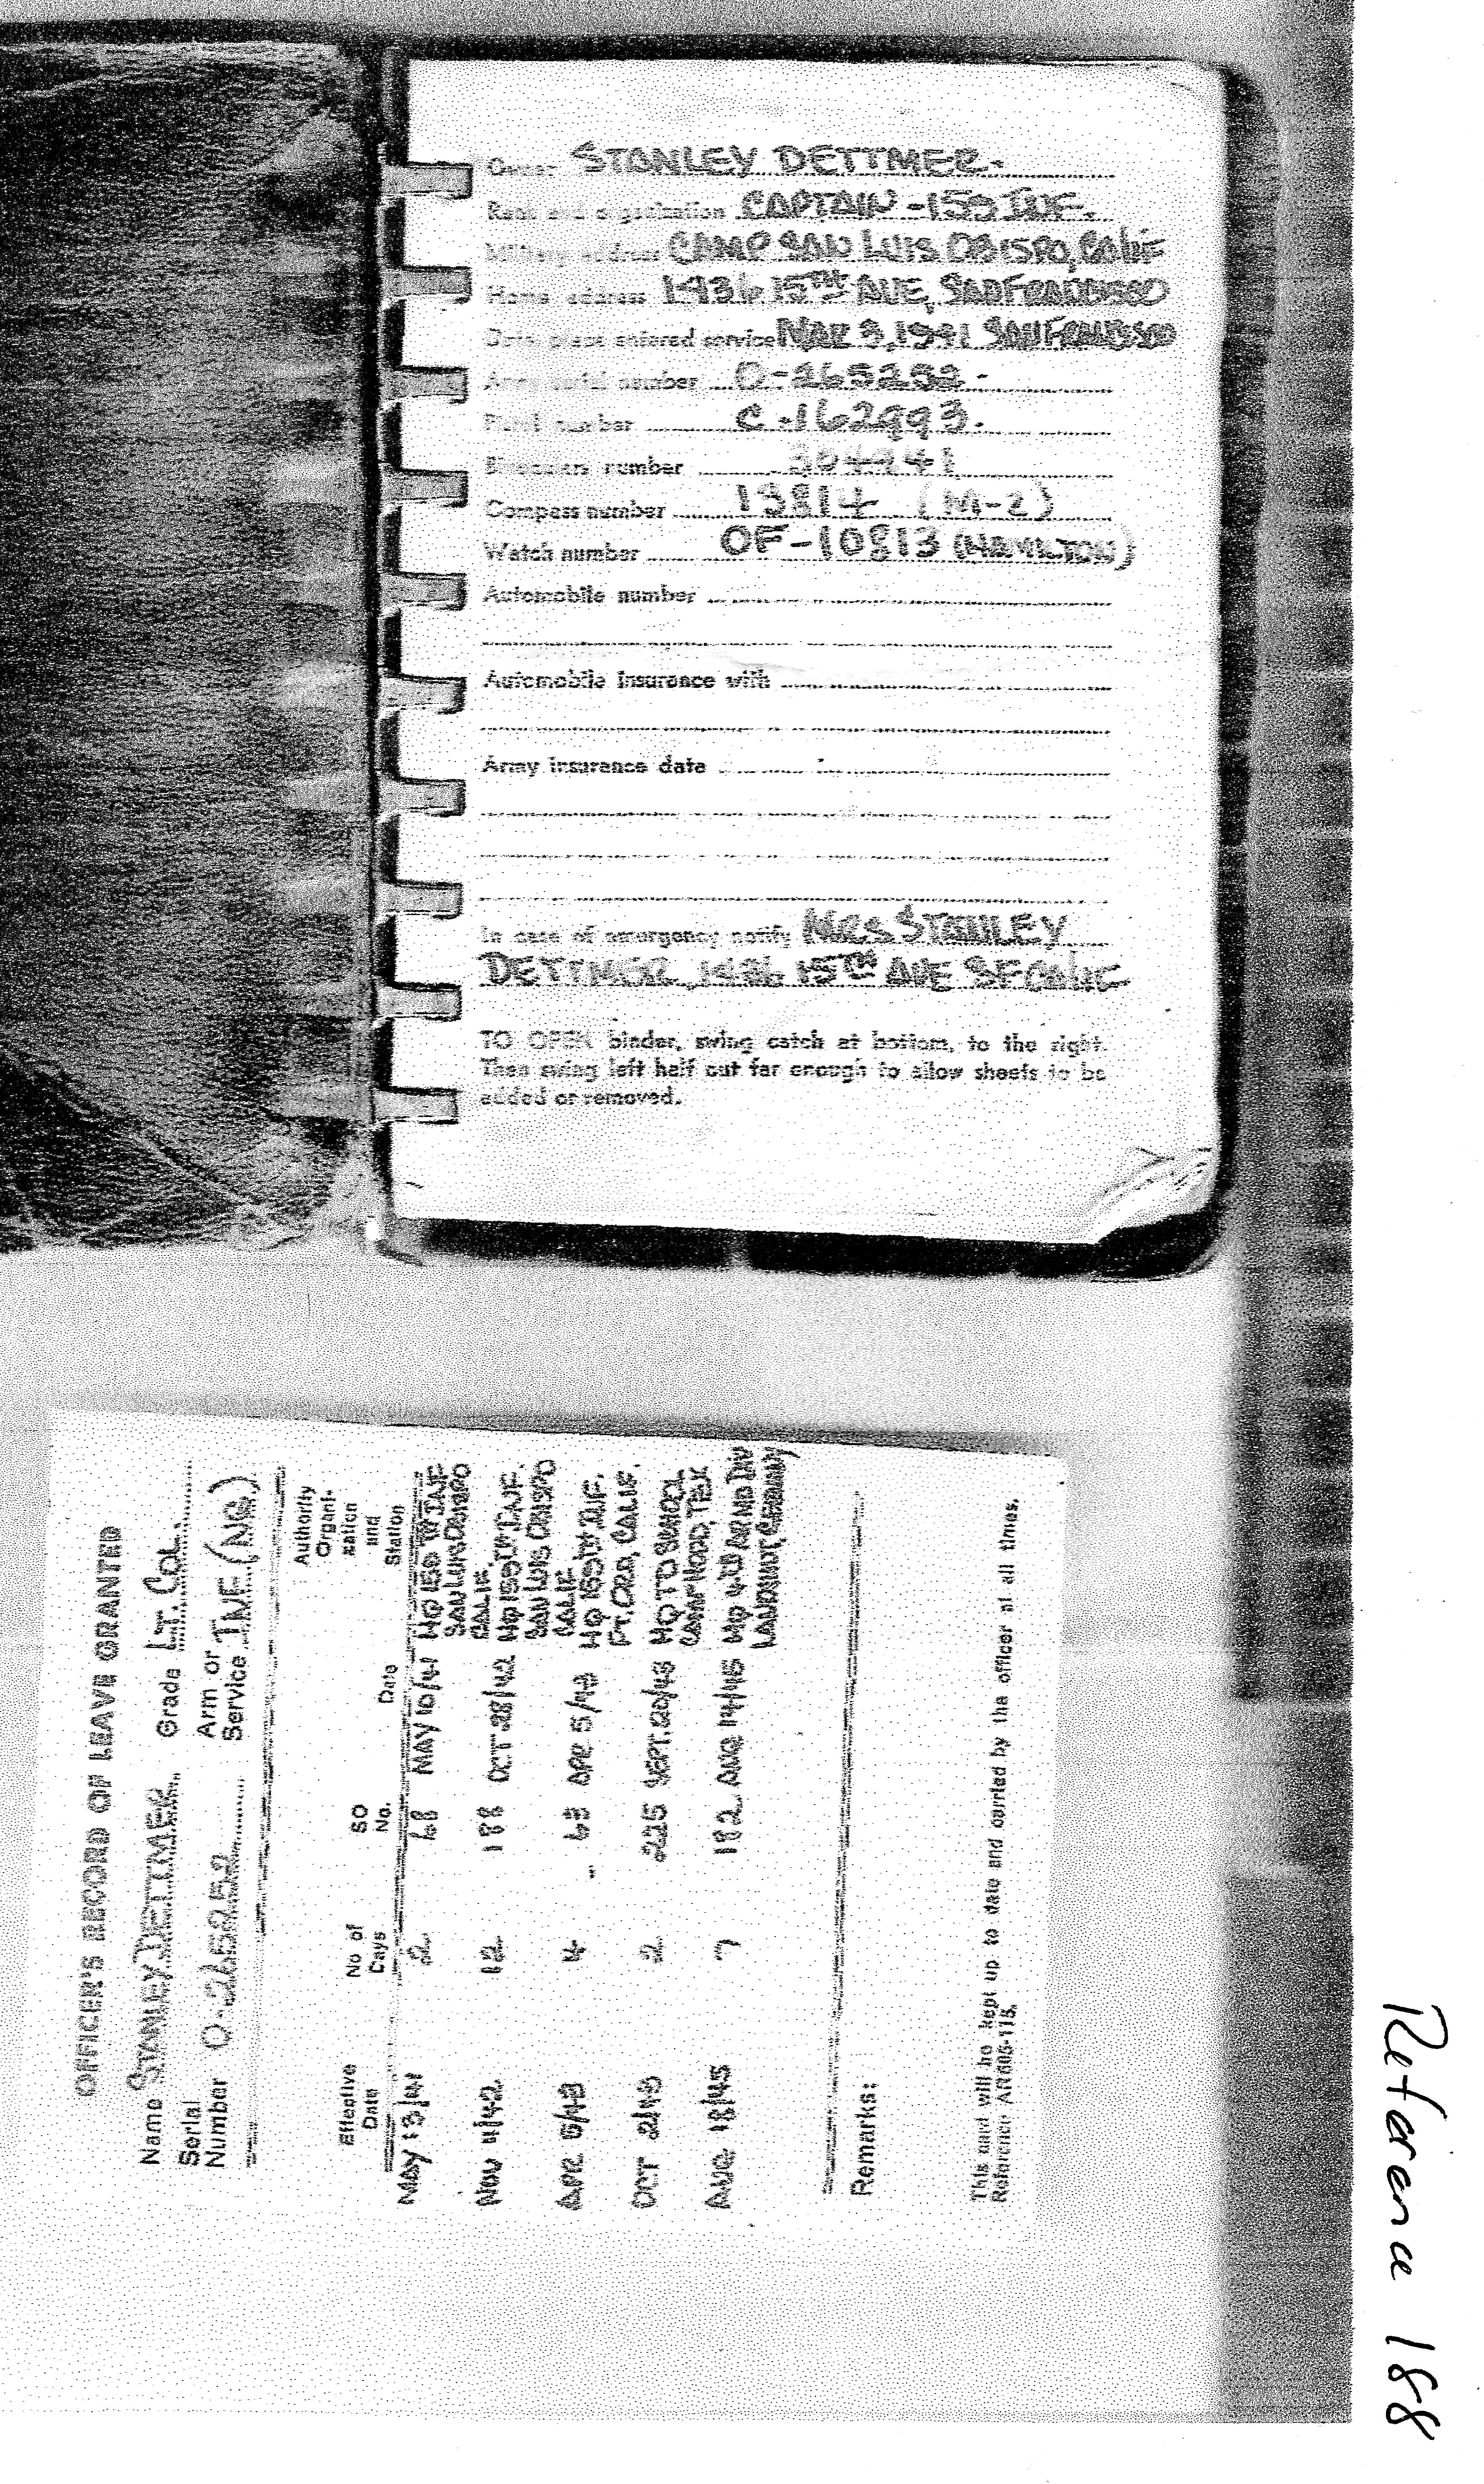 Owner STANLEY DETTMER.
Rank and organization CAPTAIN - 159 INF.
Military address CAMP SAN LUIS OBISPO, CALIF
Home address 1436 15TH AVE, SAN FRANCISCO
Date, place entered service MAR 3, 1941 SAN FRANCISCO
Army serial number O-265252.
Pistol number C-162993.
Binoculars number 304441
Compass number 13814 (M-2)
Watch number OF-10813 (HAMILTON)
Automobile number
Automobile Insurance with
Army insurance data
In case of emergency notify MRS STANLEY
DETTMER, 1436 15TH AVE SF CALIF
TO OPEN binder, swing catch at bottom, to the right.
Then swing left half out far enough to allow sheets to be
added or removed.
OFFICER'S RECORD OF LEAVE GRANTED
Name STANLEY DETTMER Grade LT. COL.
Serial Number O-265252 Arm or Service INF (NG)
Effective Date No of Days SO No. Date Authority Organi-zation and Station
MAY 13/41 2 68 MAY 10/41 HQ 159TH INF SAN LUIS OBISPO CALIF.
NOV 4/42 12 188 OCT 28/42 HQ 159TH INF. SAN LUIS OBISPO CALIF
APR 5/43 4 63 APR 5/43 HQ 159TH INF. FT. ORD, CALIF.
OCT 2/43 2 225 SEPT. 20/43 HQ TD SCHOOL CAMP HOOD, TEX
AUG 18/45 7 182 AUG 14/45 HQ 4TH ARMD DIV LANDSHUT, GERMANY
Remarks:
This card will be kept up to date and carried by the officer at all times.
Reference AR605-115.
Reference 188